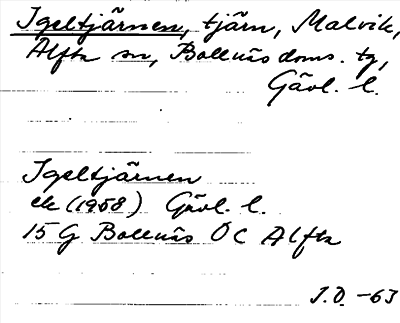 Igeltjärnen, tjärn, Malvik,
Alfta sn, Bollnäs doms. tg,
Gävl. l.
Igeltjärnen
ek (1958) Gävl. l.
15 G Bollnäs ÖC Alfta
J.Ö. -63